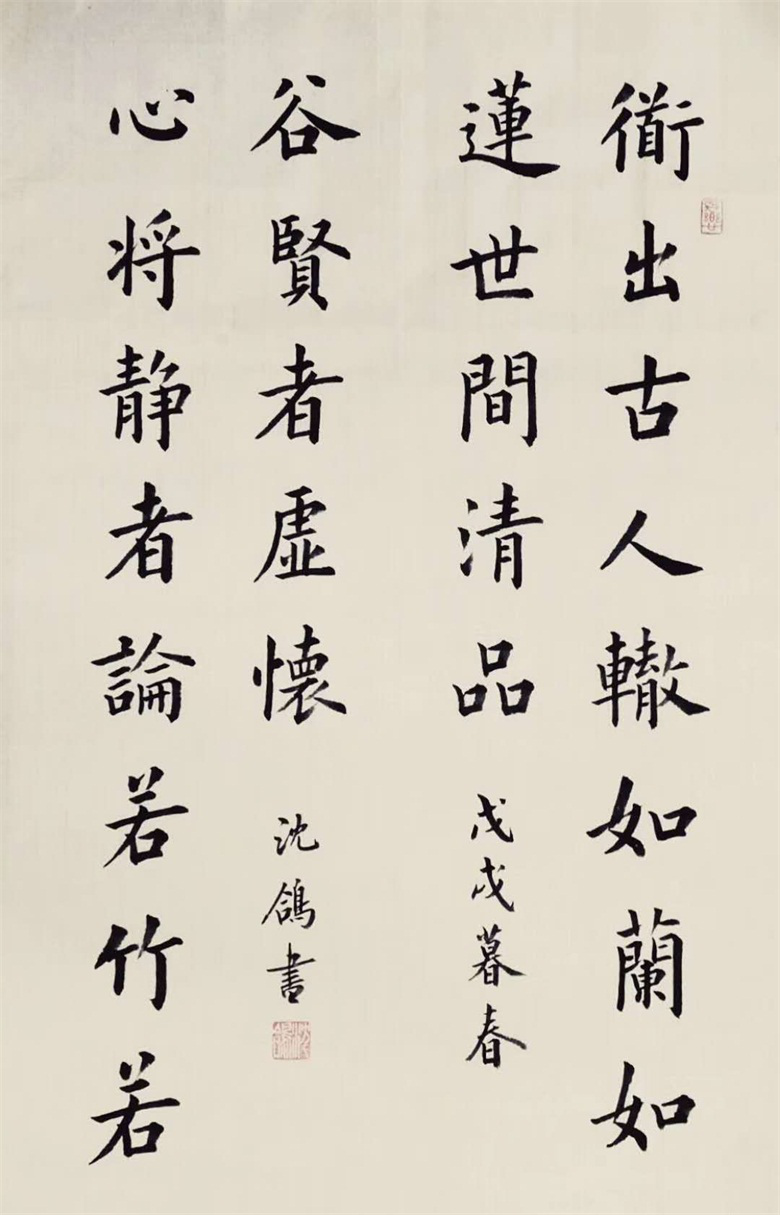 衜出古人轍如蘭如
蓮世間清品
戊戌暮春
心将静者論若竹若
谷賢者虚懐
沈鴿書